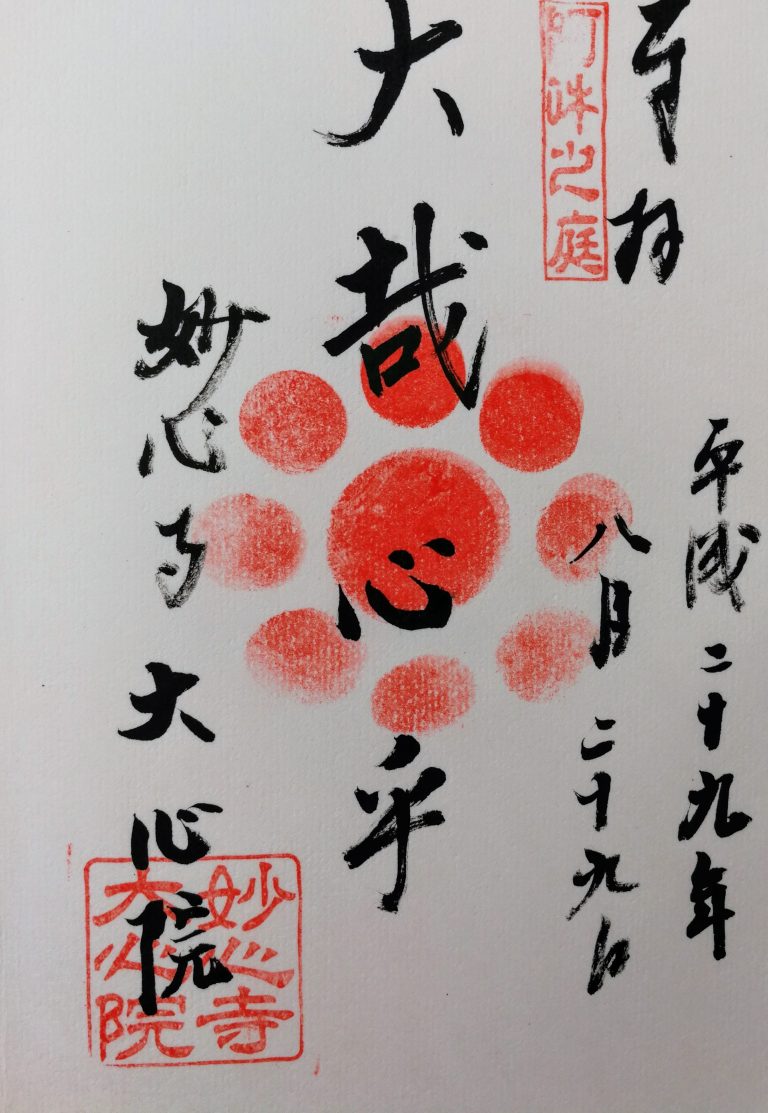 奉拝
平成二十九年
八月二十九日
阿吽之庭
大哉心乎
妙心寺大心院
妙心寺
大心院